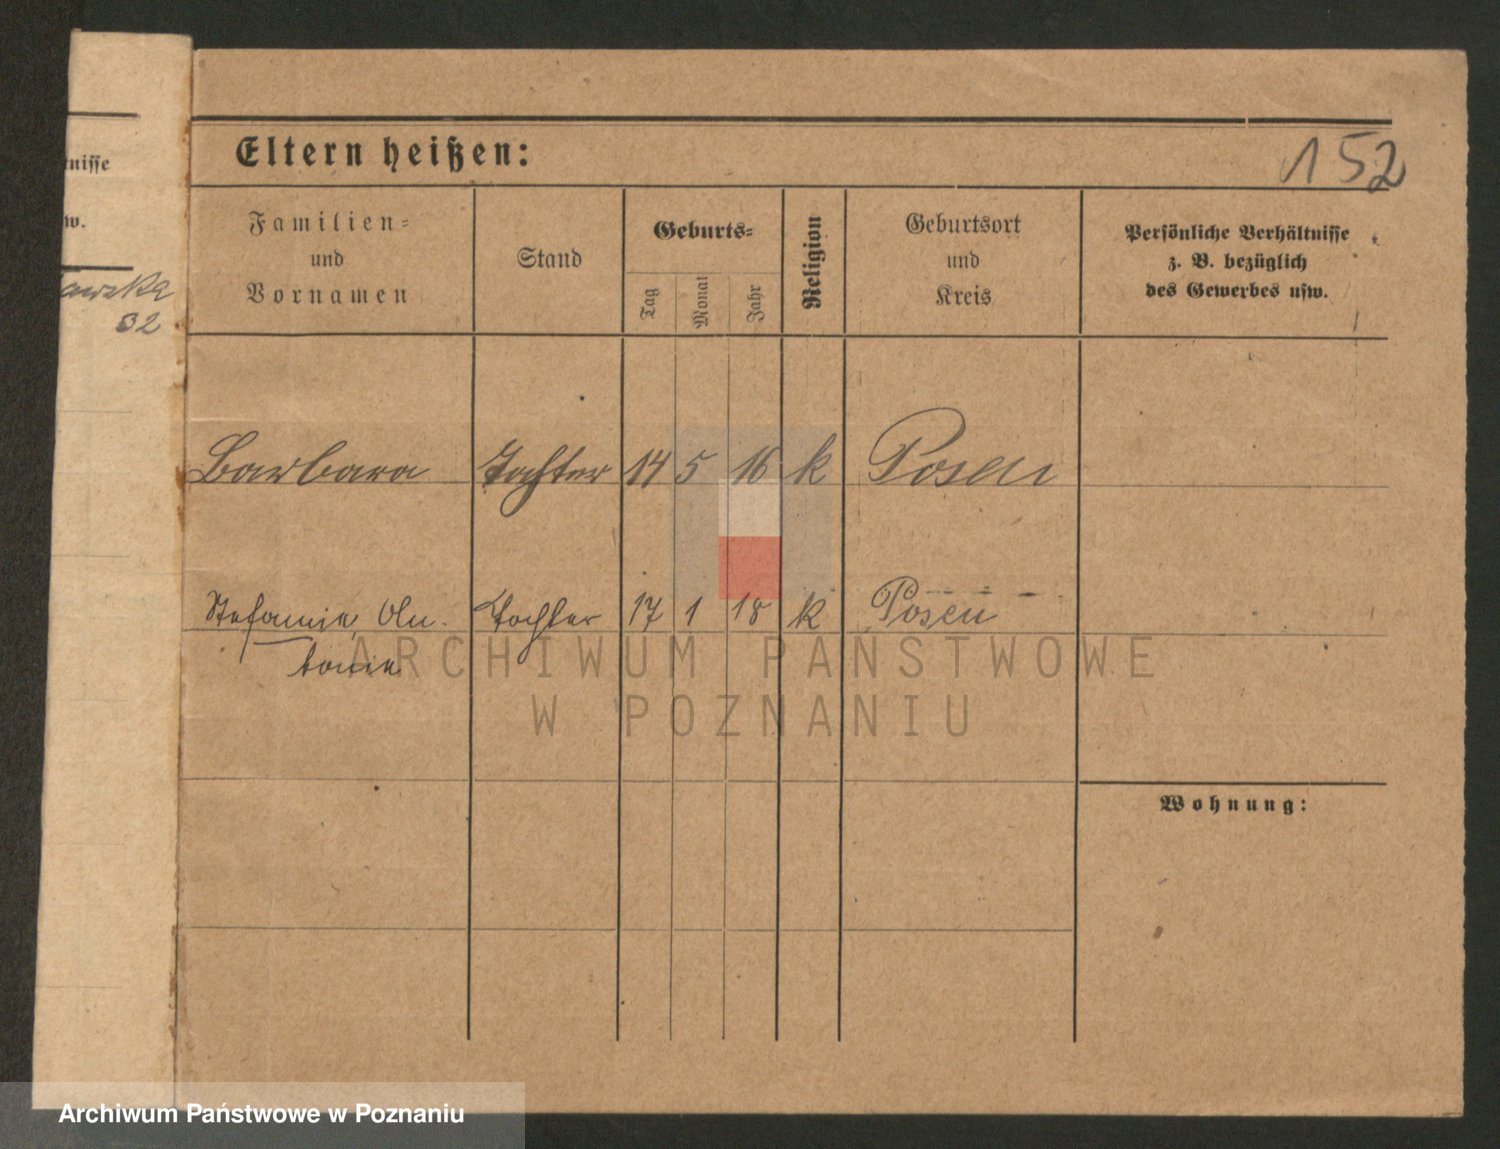 Eltern heißen:
152
nisse
w.
Familien=
und
Vornamen
Stand
Geburts=
Tag
Monat
Jahr
Religion
Geburtsort
und
Kreis
Persönliche Verhältnisse
z. B. bezüglich
des Gewerbes usw.
Barbara Tochter 14 5 16 k Posen
Stefanie, An- Tochter 17 1 18 k Posen
tonie
ARCHIWUM PAŃSTWOWE
W POZNANIU
Wohnung:
Archiwum Państwowe w Poznaniu